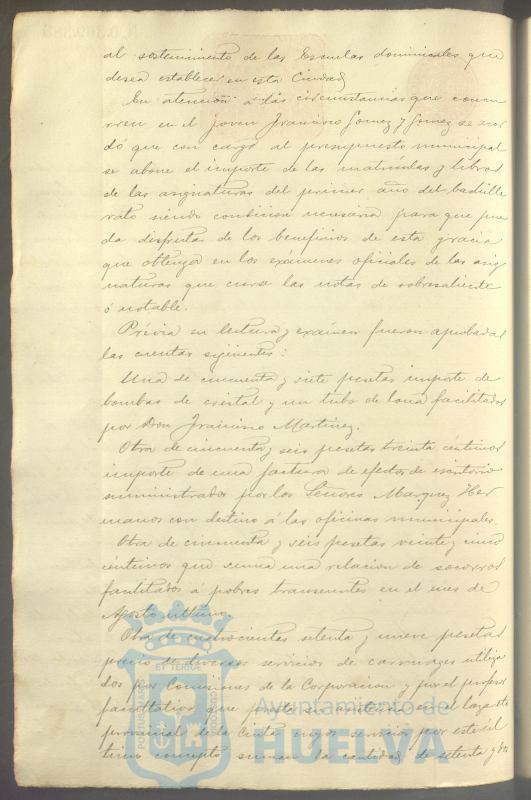 al sostenimiento de las Escuelas dominicales que
desea establecer en esta Ciudad
En atención á las circunstancias que concu
rren en el joven Francisco Gomez y Gomez se acor
dó que con cargo al presupuesto municipal
se abone el importe de las matriculas y libros
de las asignaturas del primer año del bachille
rato siendo condicion necesaria para que pue
da disfrutar de los beneficios de esta gracia
que obtenga en los exámenes oficiales de las asig
naturas que curse las notas de sobresaliente
ó notable.
Prévia su lectura y exámen fueron aprobadas
las cuentas siguientes:
Una de cincuenta y siete pesetas importe de
bombas de cristal y un tubo de lona facilitados
por Don Francisco Martinez.
Otra de cincuenta y seis pesetas treinta céntimos
importe de una factura de efectos de escritorio
suministrados por los Señores Marquez Her
manos con destino á las oficinas municipales.
Otra de cincuenta y seis pesetas veinte y cinco
céntimos que suma una relacion de socorros
facilitados á pobres transeuntes en el mes de
Agosto último.
Otra de cuatrocientas setenta y nueve pesetas
precio de diversos servicios de carruages utiliza
dos por Comisiones de la Corporacion y por el profesor
facultativo que presta su asistencia en el Lazareto
provisional de la Cinta cuyos servicios por este úl
timo concepto suman la cantidad de setenta y
PORTUS MARIS ET TERRAE CUSTODIA
Ayuntamiento de
HUELVA